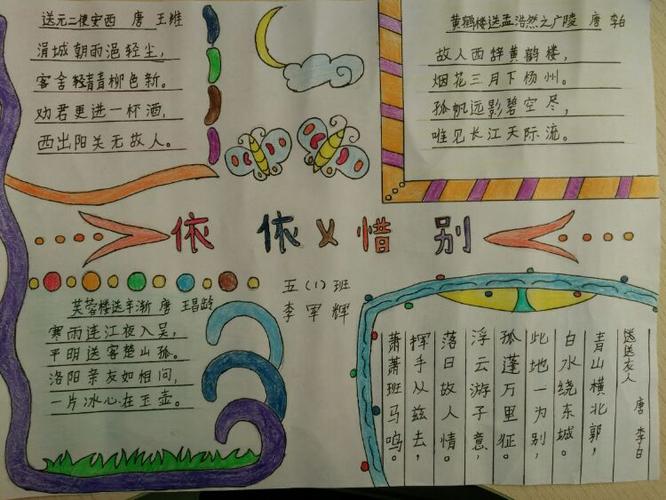 送元二使安西 唐 王维
涓城朝雨浥轻尘，
客舍轻青柳色新。
劝君更进一杯酒，
西出阳关无故人。
黄鹤楼送孟浩然之广陵 唐 李白
故人西辞黄鹤楼，
烟花三月下杨州。
孤帆远影碧空尽，
唯见长江天际流。
依依惜别
五(1)班
李军辉
芙蓉楼送辛渐 唐 王昌龄
寒雨连江夜入吴，
平明送客楚山孤。
洛阳亲友如相问，
一片冰心在玉壶。
送友人 唐 李白
青山横北郭，
白水绕东城。
此地一为别，
孤蓬万里征。
浮云游子意，
落日故人情。
挥手从兹去，
萧萧班马鸣。